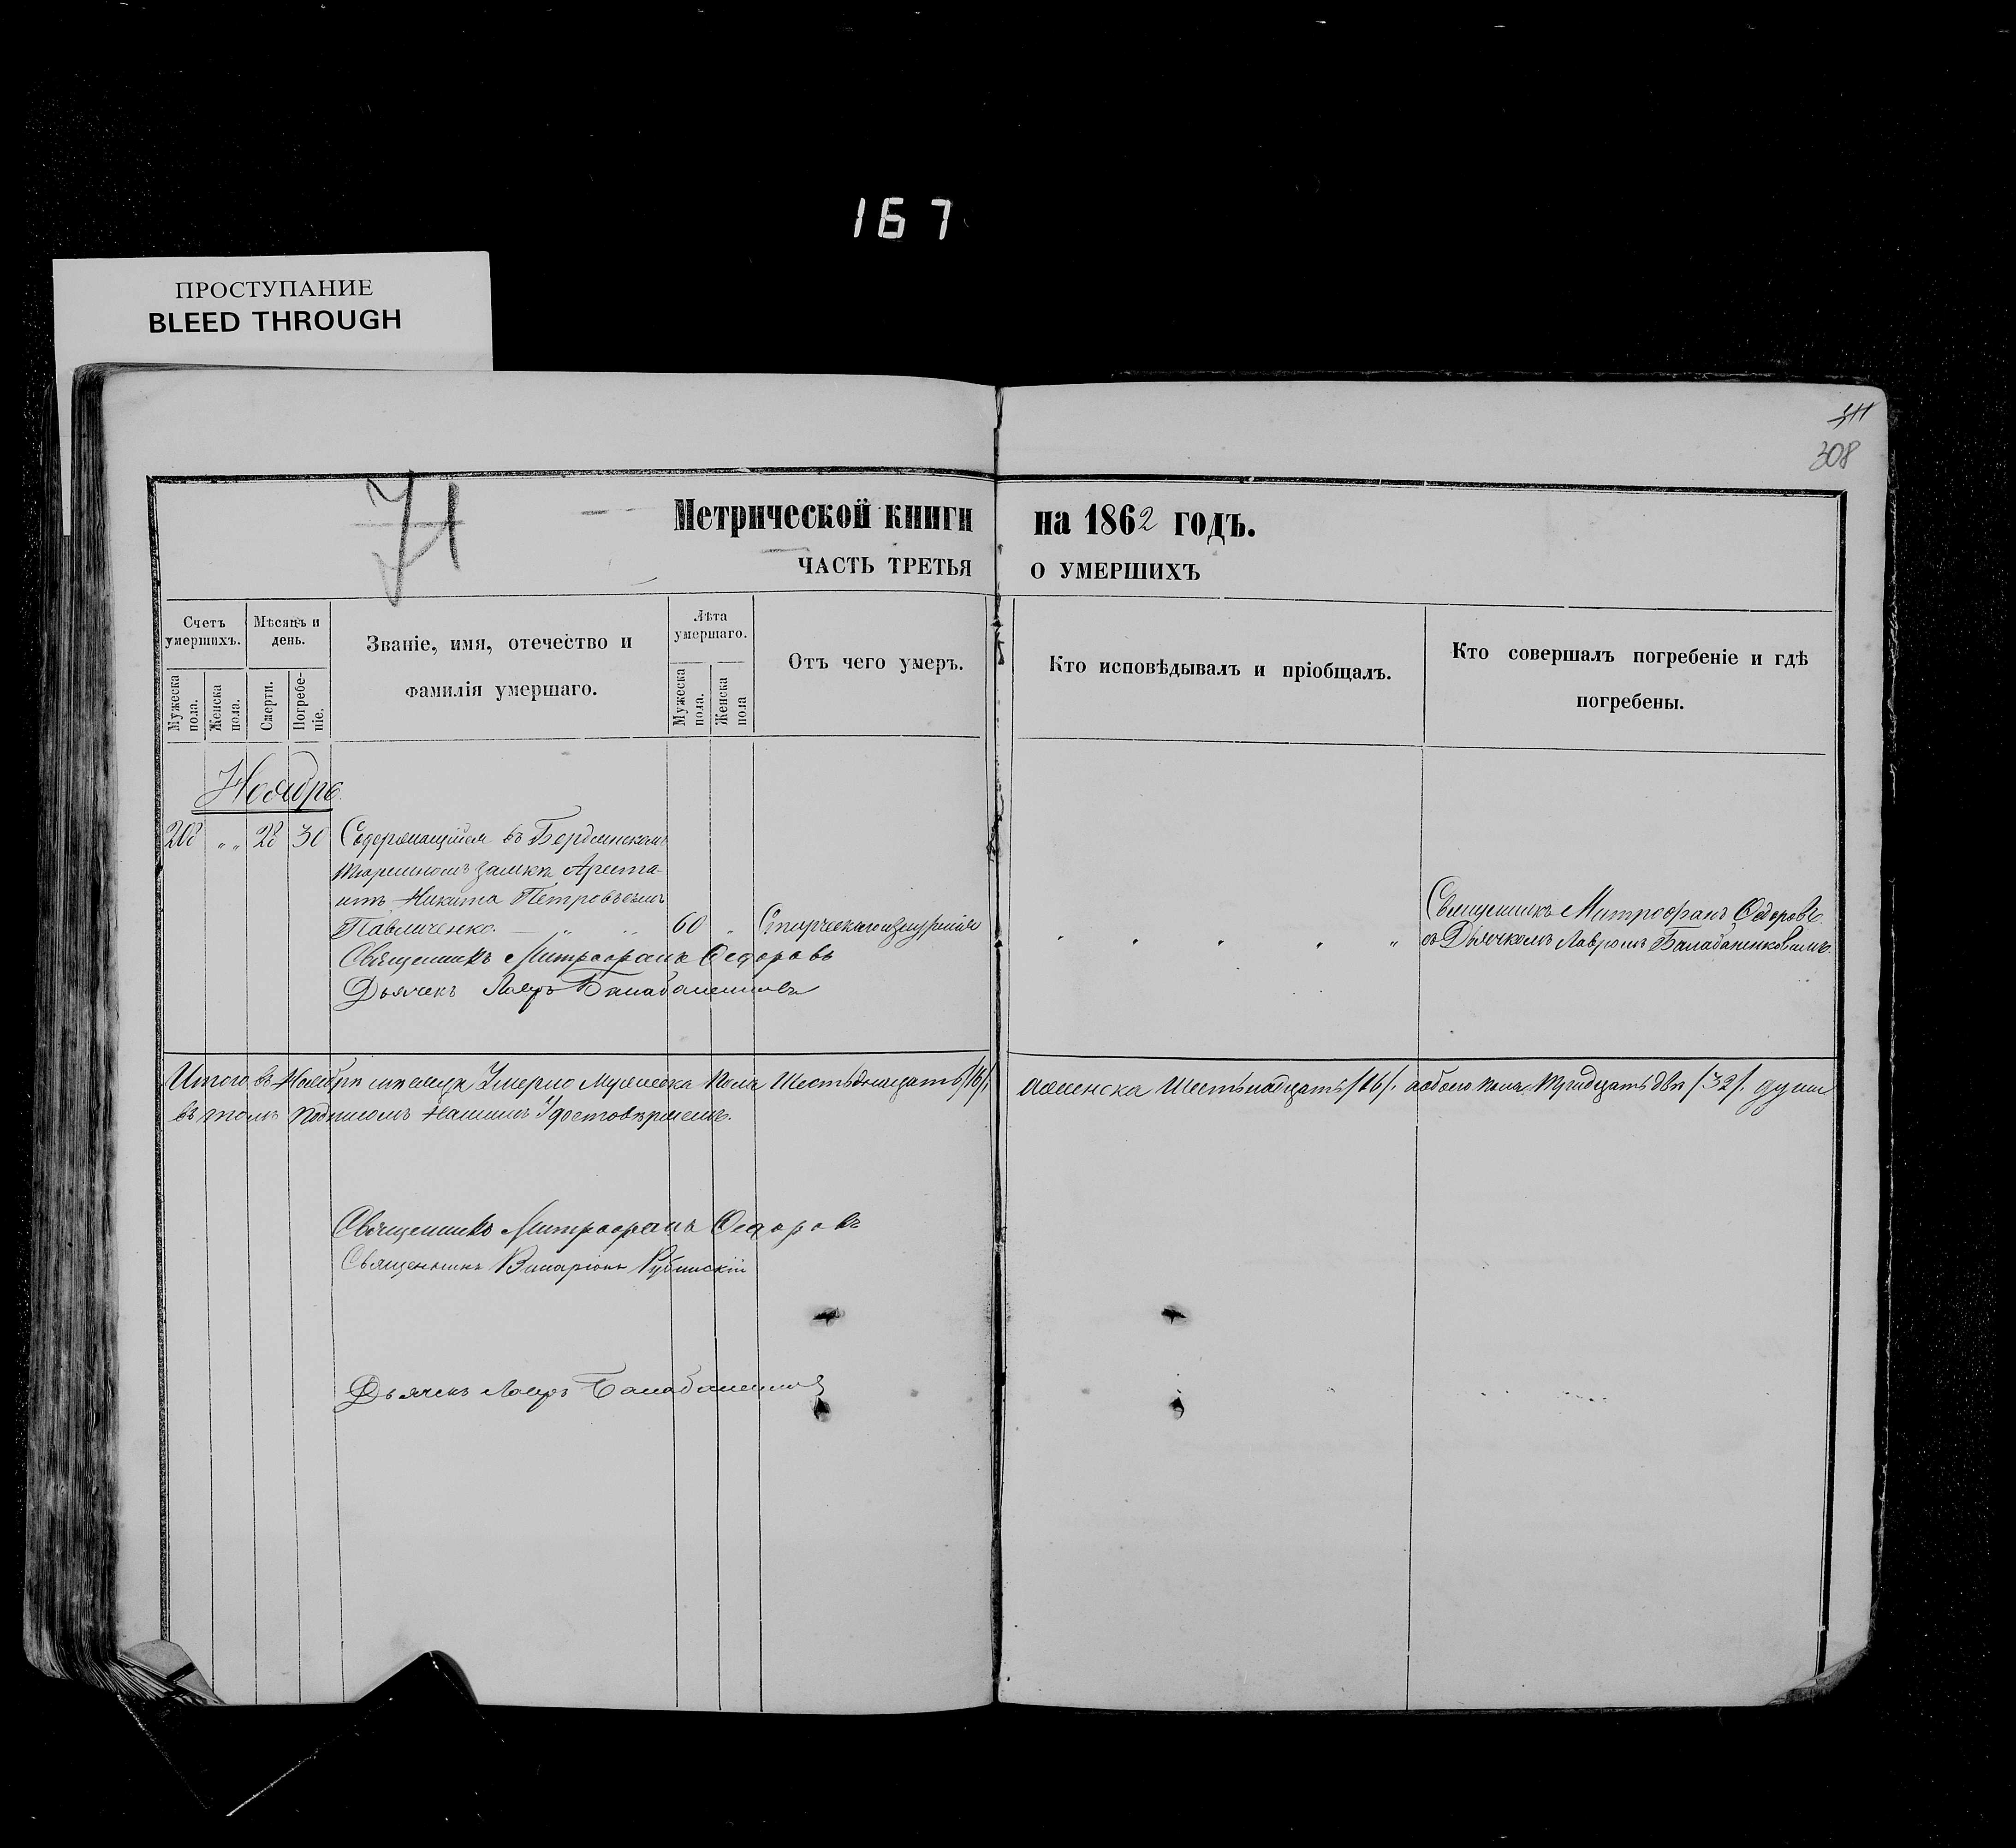 167
ПРОСТУПАНИЕ
BLEED THROUGH
311
308
71
Метрической книги на 1862 годъ.
ЧАСТЬ ТРЕТЬЯ О УМЕРШИХЪ
Счетъ умершихъ.
Мѣсяцъ и день.
Званіе, имя, отечество и фамилія умершаго.
Лѣта умершаго.
Отъ чего умеръ.
Кто исповѣдывалъ и пріобщалъ.
Кто совершалъ погребеніе и гдѣ погребены.
Мужеска пола.
Женска пола.
Смерти.
Погребеніе.
Мужеска пола.
Женска пола
Ноябрь
208 „ „ 28 30 Содержащійся въ Бердянскомъ
тюремномъ замкѣ Ареста-
нтъ Никита Петровъ сынъ
Павличенко. — „ „ 60 „
Священникъ Митрофанъ Ѳедоровъ
съ Дьячкомъ Лавромъ Балабаненковымъ.
Священникъ Митрофанъ Ѳедоровъ
Дьячекъ Лавръ Балабаненковъ
Итого въ Ноябрѣ мѣсяцѣ Умерло Мужеска пола Шестьнадцать /16/, а женска Шестьнадцать /16/. а обоего пола Тридцать двѣ /32/. души
въ томъ подписомъ нашимъ Удостовѣряемъ.
Священникъ Митрофанъ Ѳедоровъ
Священникъ
Дьячекъ Лавръ Балабаненковъ